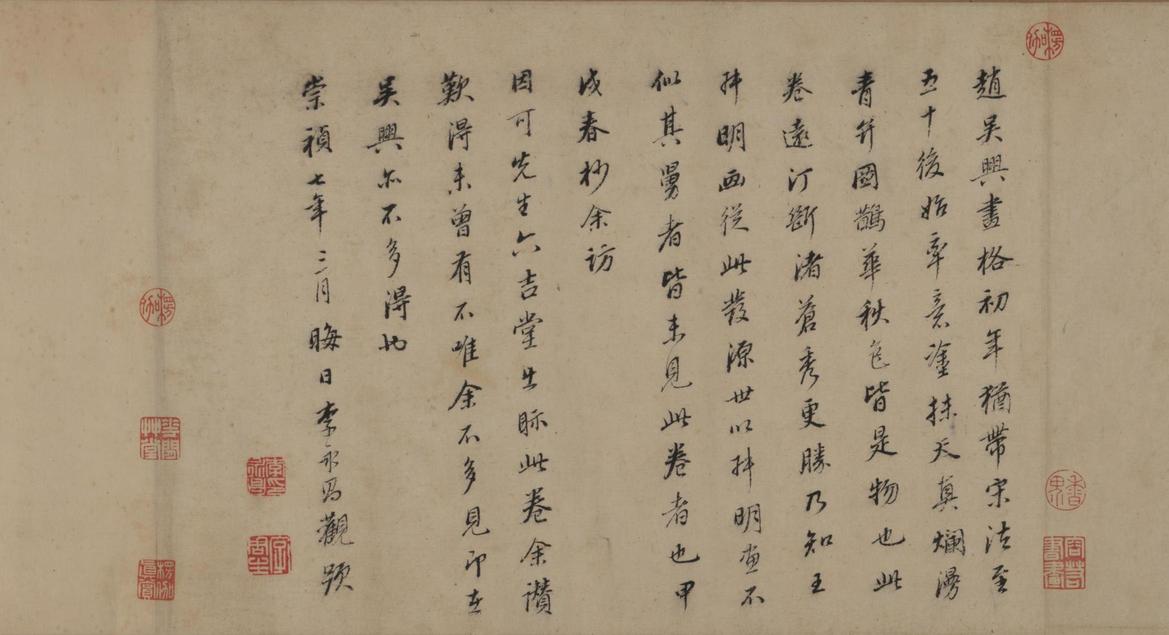 趙吳興畫格初年猶帶宋法至
五十後始率意塗抹天真爛漫
青弁圖鵲華秋色皆是物也此
卷遠汀斷渚蒼秀更勝乃知王
叔明画從此發源世以叔明画不
似其舅者皆未見此卷者也甲
戌春杪余訪
因可先生六吉堂出眎此卷余讚
歎得未曾有不唯余不多見即在
吳興亦不多得也
崇禎七年三月晦日李永昌觀題